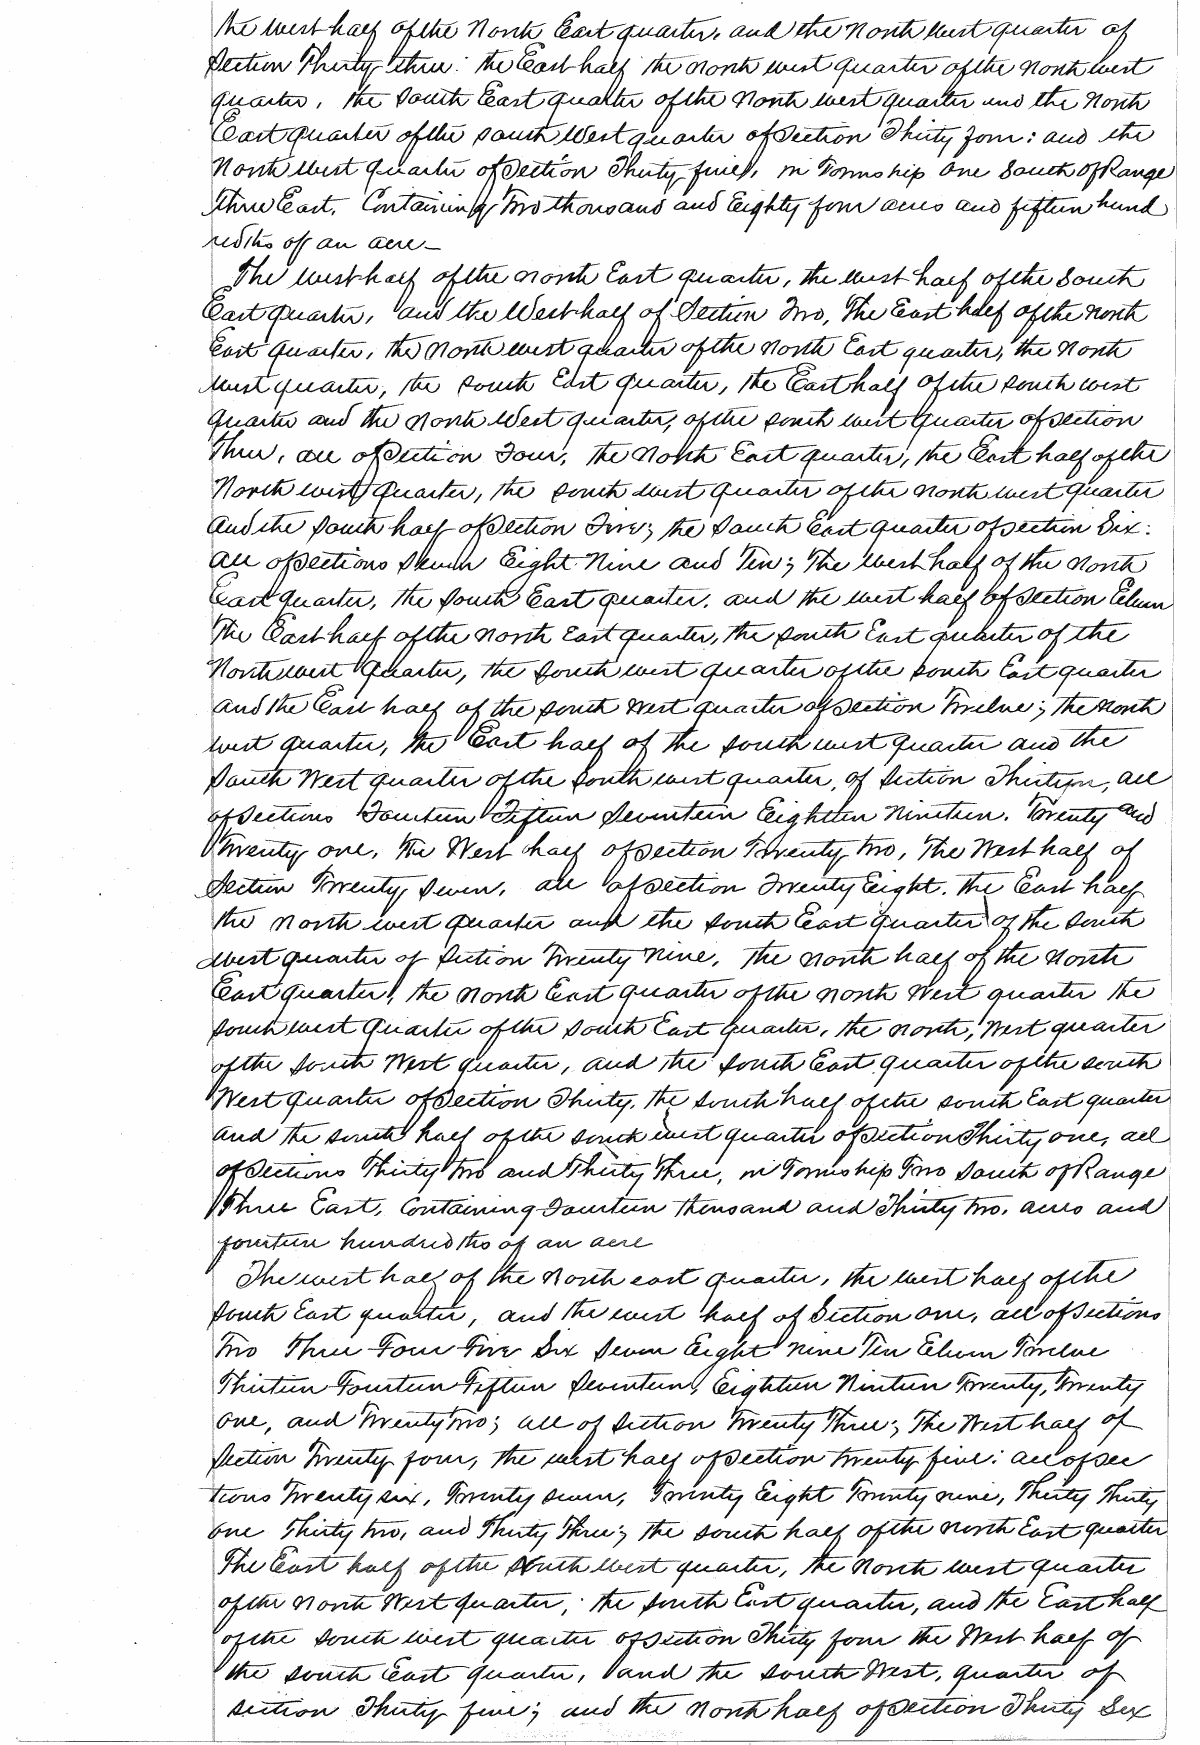 the west half of the North East quarter, and the North west quarter of
Section Thirty three: the East half the north west quarter of the North west
quarter, the South East quarter of the North west quarter and the North
East quarter of the South West quarter of Section Thirty four: and the
North West quarter of Section Thirty five, in Township one South of Range
Three East, Containing Two thousand and Eighty four acres and fifteen hund
redths of an acre—
The west half of the North East quarter, the west half of the South
East quarter, and the West half of Section Two, The East half of the North
East quarter, the North west quarter of the North East quarter, the North
west quarter, the South East quarter, the East half of the South west
quarter and the North West quarter, of the South west quarter of Section
Three, all of Section Four, the North East quarter, the East half of the
North west quarter, the South west quarter of the North west quarter
and the South half of Section Five; the South East quarter of section Six:
all of Sections Seven Eight Nine and Ten; The West half of the North
East quarter, the South East quarter, and the west half of Section Eleven
The East half of the North East quarter, the South East quarter of the
North west quarter, the South west quarter of the South East quarter
and the East half of the South West quarter of Section Twelve; the North
west quarter, the East half of the South west quarter and the
South West quarter of the South west quarter, of Section Thirteen, all
of Sections Fourteen Fifteen Seventeen Eighteen Nineteen, Twenty and
Twenty one, The West half of Section Twenty two, The West half of
Section Twenty Seven, all of Section Twenty Eight, the East half
the North west quarter and the South East quarter of the South
west quarter of Section Twenty Nine, The North half of the North
East quarter, the North East quarter of the North West quarter the
South west quarter of the South East quarter, the North, West quarter
of the South West quarter, and the South East quarter of the South
West quarter of Section Thirty, the South half of the South East quarter
and the South half of the South west quarter of Section Thirty one, all
of Sections Thirty Two and Thirty Three, in Township Two South of Range
Three East, Containing Fourteen thousand and Thirty two, acres and
fourteen hundredths of an acre
The west half of the North east quarter, the west half of the
South East quarter, and the west half of Section one, all of Sections
Two Three Four Five Six Seven Eight Nine Ten Eleven Twelve
Thirteen Fourteen Fifteen Seventeen, Eighteen Ninteen Twenty, Twenty
one, and Twenty Two; all of Section Twenty Three; The West half of
Section Twenty four, the west half of Section twenty five: all of Sec
tions Twenty six, Twenty seven, Twenty Eight Twenty nine, Thirty Thirty
one Thirty two, and Thirty Three; the South half of the North East quarter
The East half of the South west quarter, the North west quarter
of the North West quarter, the South East quarter, and the East half
of the South west quarter of Section Thirty four the West half of
the South East quarter, and the South West, quarter of
Section Thirty five; and the North half of Section Thirty Six